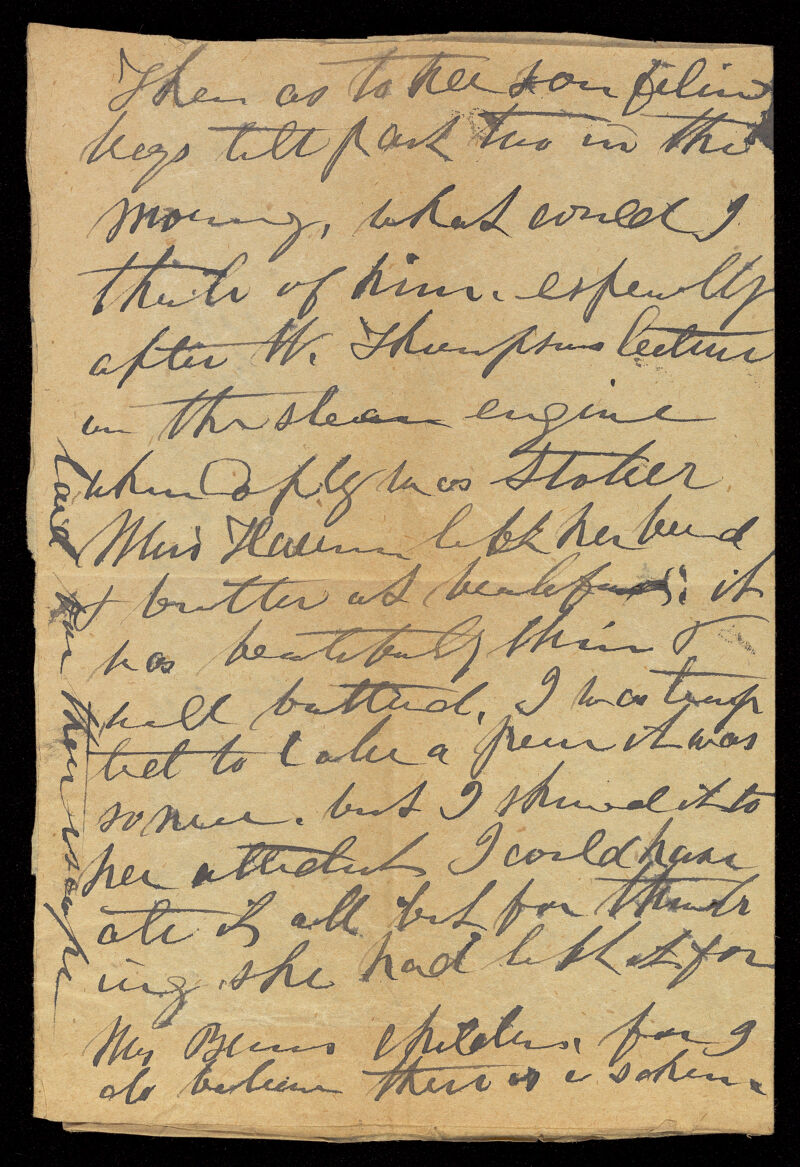 Then as to her son filin
legs till past two in the
morning, what could I
think of him. especially
after W. Thompsons lecture
on the steam engine
when was stoker
Miss left her bread
& butter at breakfast; it
was beautifully thin &
well butterd, I was temp
ted to take a piece it was
so nice. but I showed it to
her attendent I could have
ate it all but for think
ing she had left it for
Mrs childern, for I
do believe there is a scheme
laid for their escape